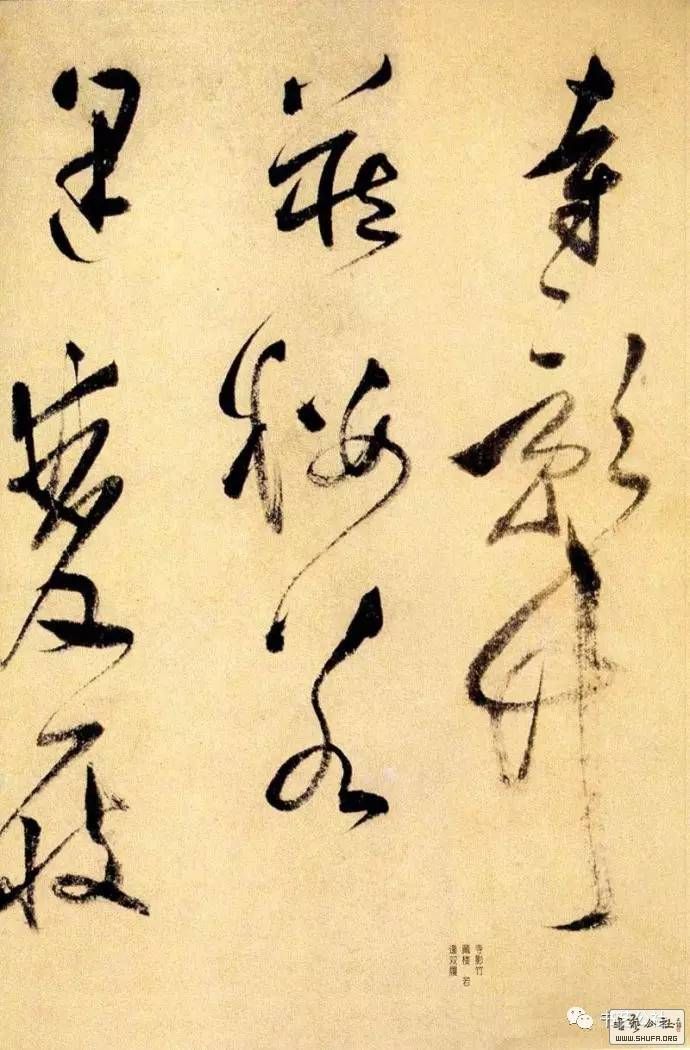 寺影竹
藏樓若
逢雙履
寺影竹
藏楼 若
逢双履
WWW.SHUFA.ORG